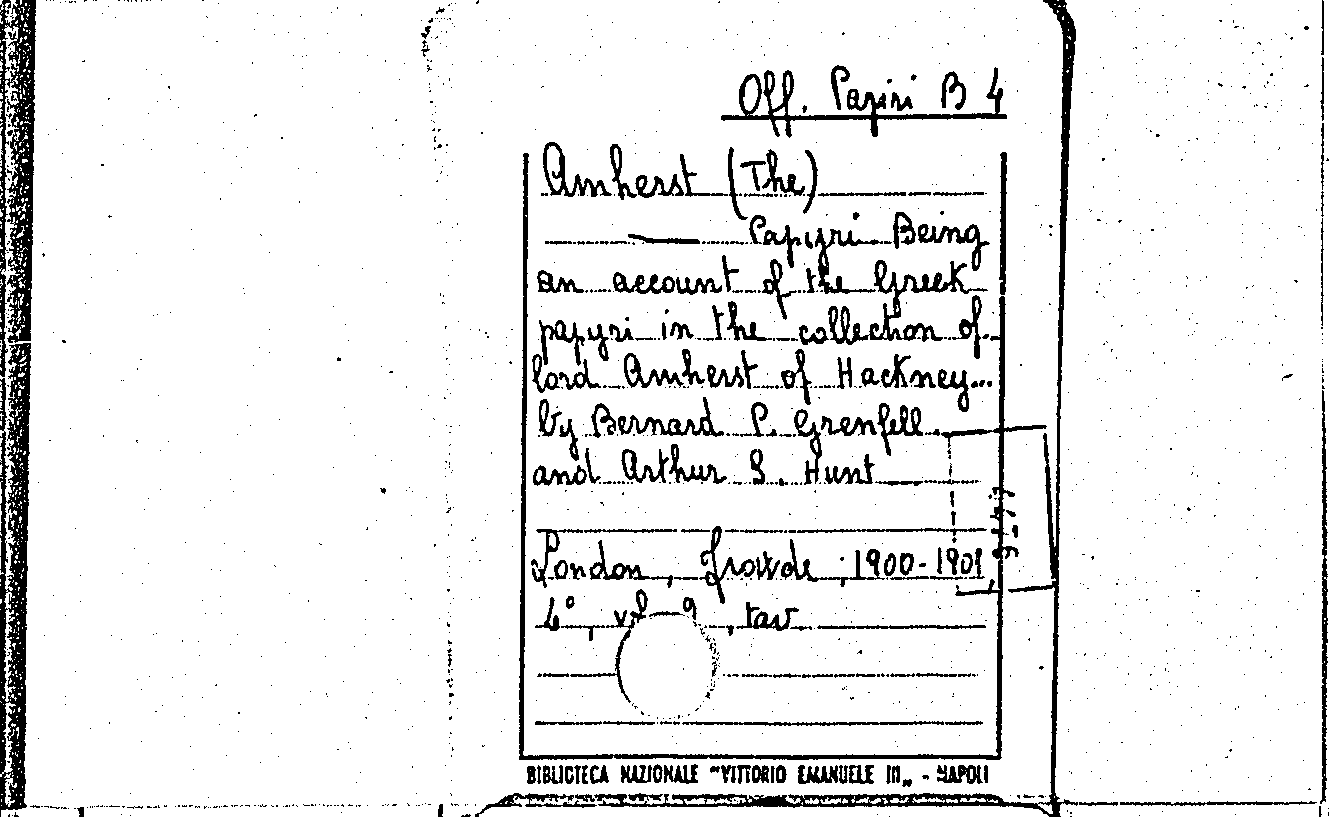 Off. Papiri B 4
Amherst (The)
— Papyri Being
an account of the Greek
papyri in the collection of
lord Amherst of Hackney...
by Bernard P. Grenfell
and Arthur S. Hunt
London, Frowde, 1900-1901,
4°, vol , tav.
BIBLIOTECA NAZIONALE "VITTORIO EMANUELE III„ - NAPOLI